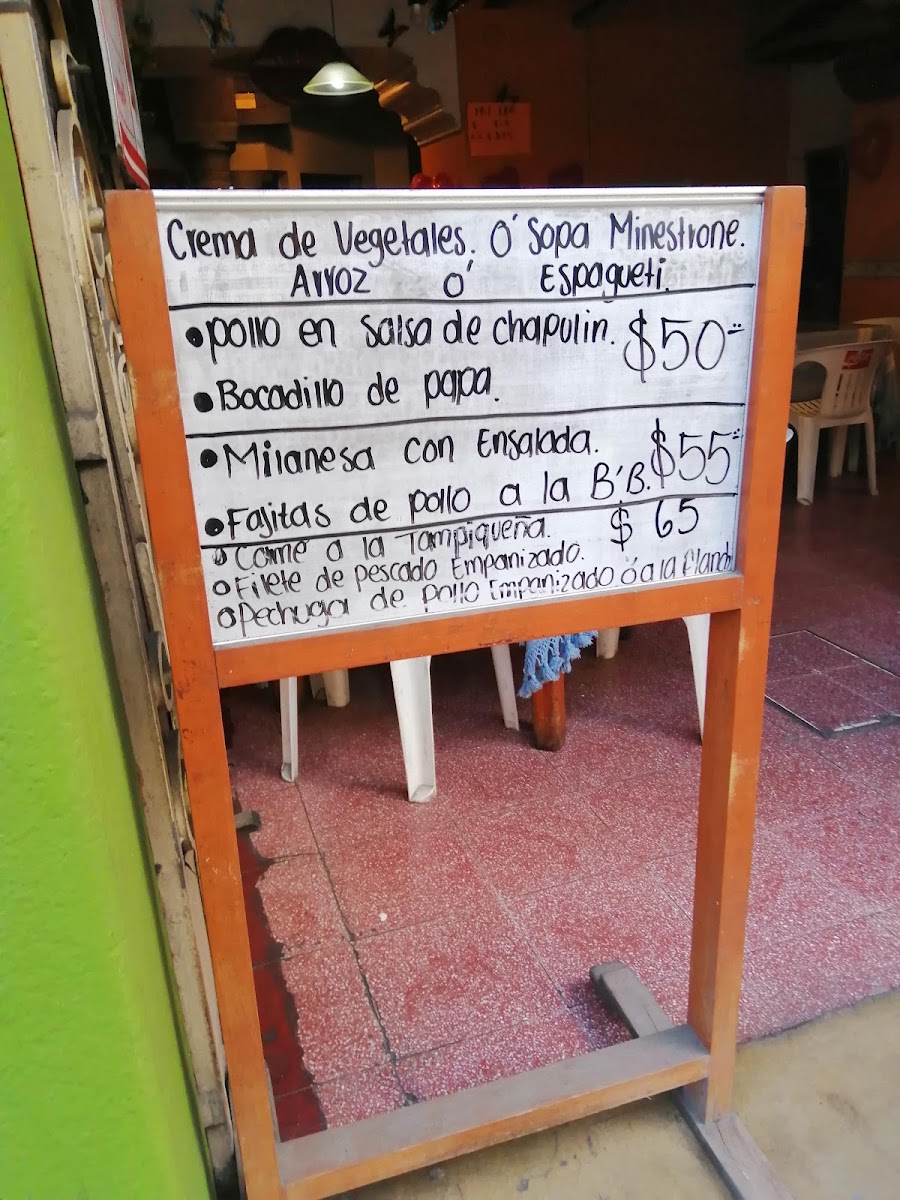 Crema de Vegetales. Ó Sopa Minestrone.
Arroz ó Espagueti.
•pollo en salsa de chapulin. $50
•Bocadillo de papa.
•Milanesa con Ensalada. $55
•Fajitas de pollo a la B'B.
•Carne a la Tampiqueña. $65
•Filete de pescado Empanizado.
•Pechuga de pollo Empanizado ó a la Planch